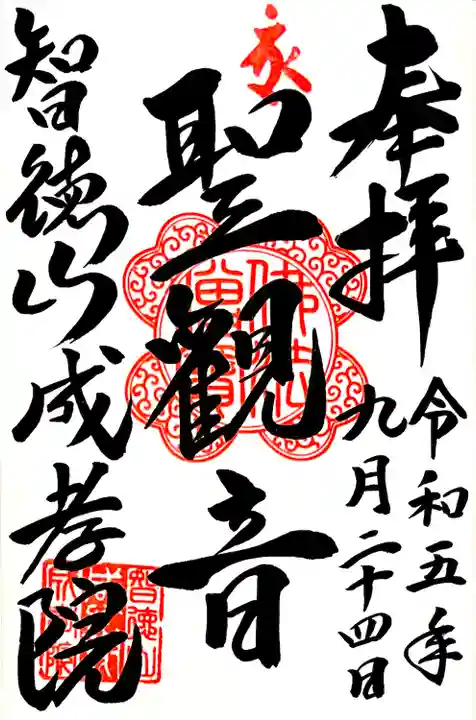 奉拝
令和五年
九月二十四日
聖觀音
佛法
僧寳
智徳山成孝院